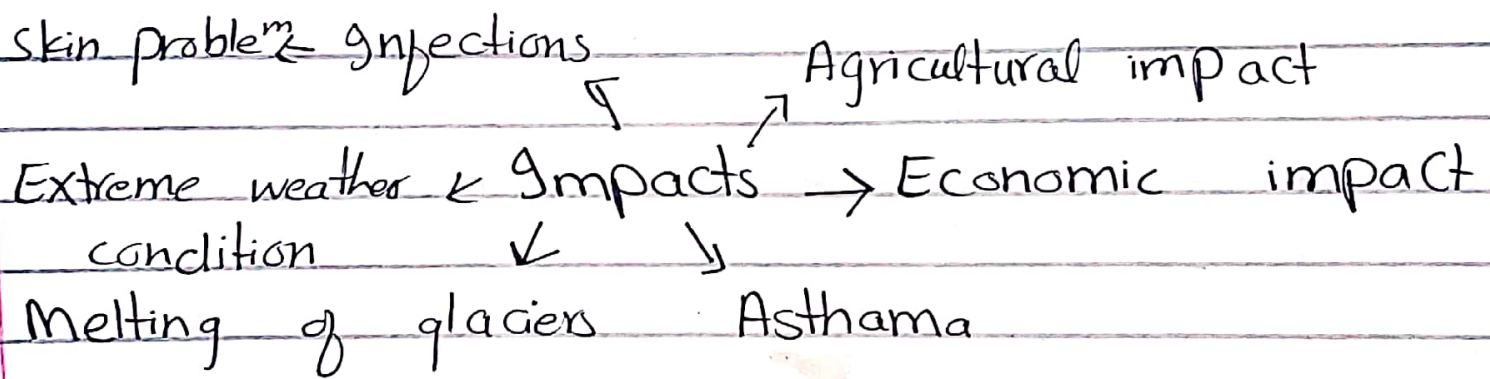 Skin problem ← Infections
Agricultural impact
Extreme weather ← Impacts → Economic impact
condition
Melting of glaciers Asthama